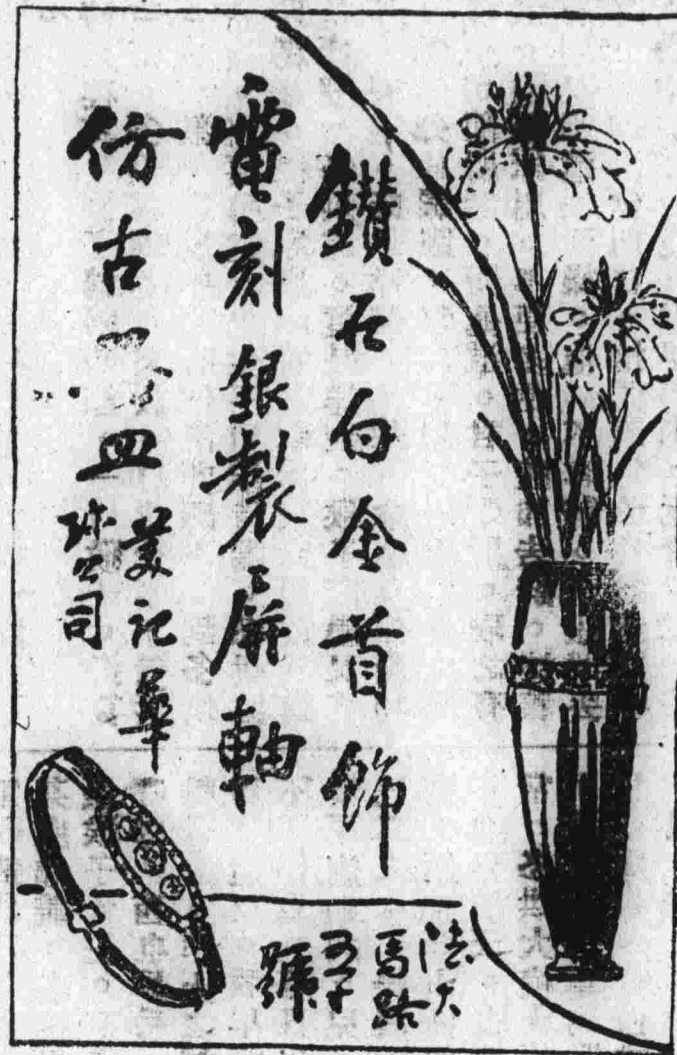 鑽石白金首飾
電刻銀製屏軸
仿古 皿
美記華
珠公司
法大
馬路
五十
號